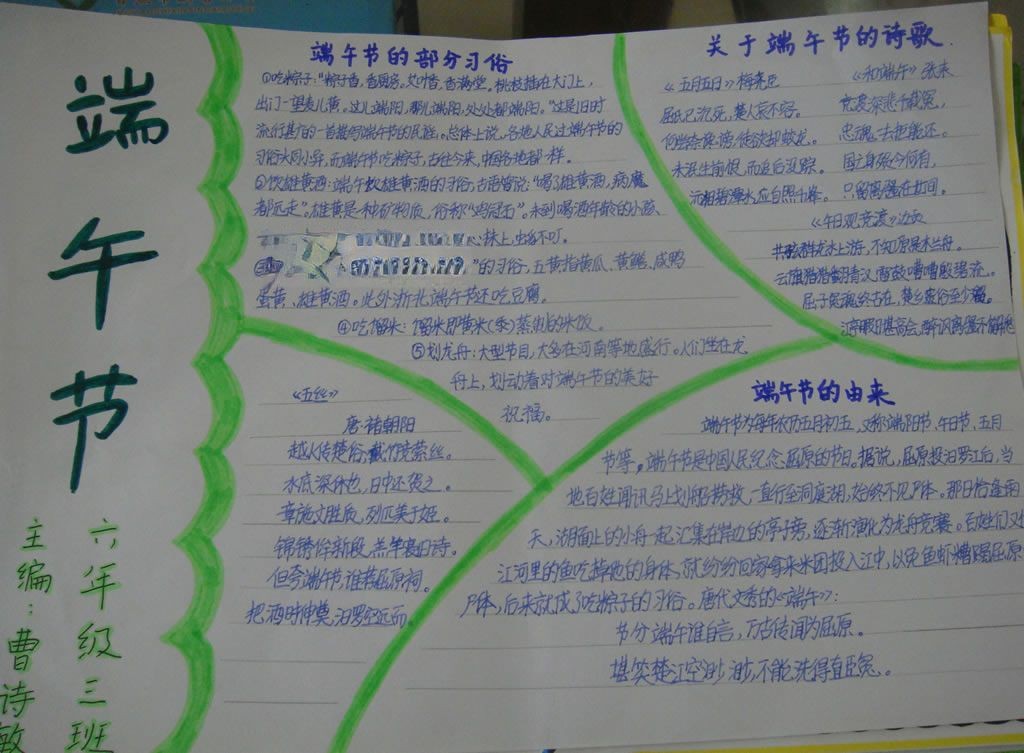 端午节
六年级三班
主编:曹诗敏
端午节的部分习俗
①吃粽子:"粽子香,香厨房。艾叶香,香满堂。桃枝插在大门上,
出门一望麦儿黄。这儿端阳,那儿端阳,处处都端阳。"这是旧时
流行甚广的一首描写端午节的民谣。总体上说,各地人民过端午节的
习俗大同小异,而端午节吃粽子,古往今来,中国各地都一样。
②饮雄黄酒:端午饮雄黄酒的习俗,古语曾说:"喝了雄黄酒,病魔
都远走"。雄黄是一种矿物质,俗称"鸡冠石"。未到喝酒年龄的小孩、
抹上,虫蛇不叮。
"的习俗,五黄指黄瓜、黄鳝、咸鸭
蛋黄、雄黄酒。此外浙北端午节还吃豆腐。
④吃馏米:馏米即黄米(黍)蒸出的米饭。
⑤划龙舟:大型节目,大多在河南等地盛行。人们坐在龙
舟上,划动着对端午节的美好
祝福。
关于端午节的诗歌
《五月五日》梅尧臣
屈氏已沉死,楚人哀不容。
何尝奈谗谤,徒欲却蛟龙。
未泯生前恨,而追后没踪。
沅湘碧潭水,应自照千峰。
《和端午》张耒
竞渡深悲千载冤,
忠魂一去讵能还。
国亡身殒今何有,
只留离骚在世间。
《午日观竞渡》边贡
共骇群龙水上游,不知原是木兰舟。
云旗猎猎翻青汉,雷鼓嘈嘈殷碧流。
屈子冤魂终古在,楚乡遗俗至今留。
江亭暇日堪高会,醉讽离骚不解愁
《五丝》
唐·褚朝阳
越人传楚俗,截竹竞萦丝。
水底深休也,日中还贺之。
章施文胜质,列匹美于姬。
锦绣侔新段,羔羊寝旧诗。
但夸端午节,谁荐屈原祠。
把酒时伸奠,汨罗空远而。
端午节的由来
端午节为每年农历五月初五,又称端阳节、午日节、五月
节等。端午节是中国人民纪念屈原的节日。据说,屈原投汨罗江后,当
地百姓闻讯马上划船捞救,一直行至洞庭湖,始终不见尸体。那日恰逢雨
天,湖面上的小舟一起汇集在岸边的亭子旁,逐渐演化为龙舟竞赛。百姓们又怕
江河里的鱼吃掉他的身体,就纷纷回家拿来米团投入江中,以免鱼虾糟蹋屈原
尸体,后来就成了吃粽子的习俗。唐代文秀的《端午》:
节分端午谁自言,万古传闻为屈原。
堪笑楚江空渺渺,不能洗得直臣冤。